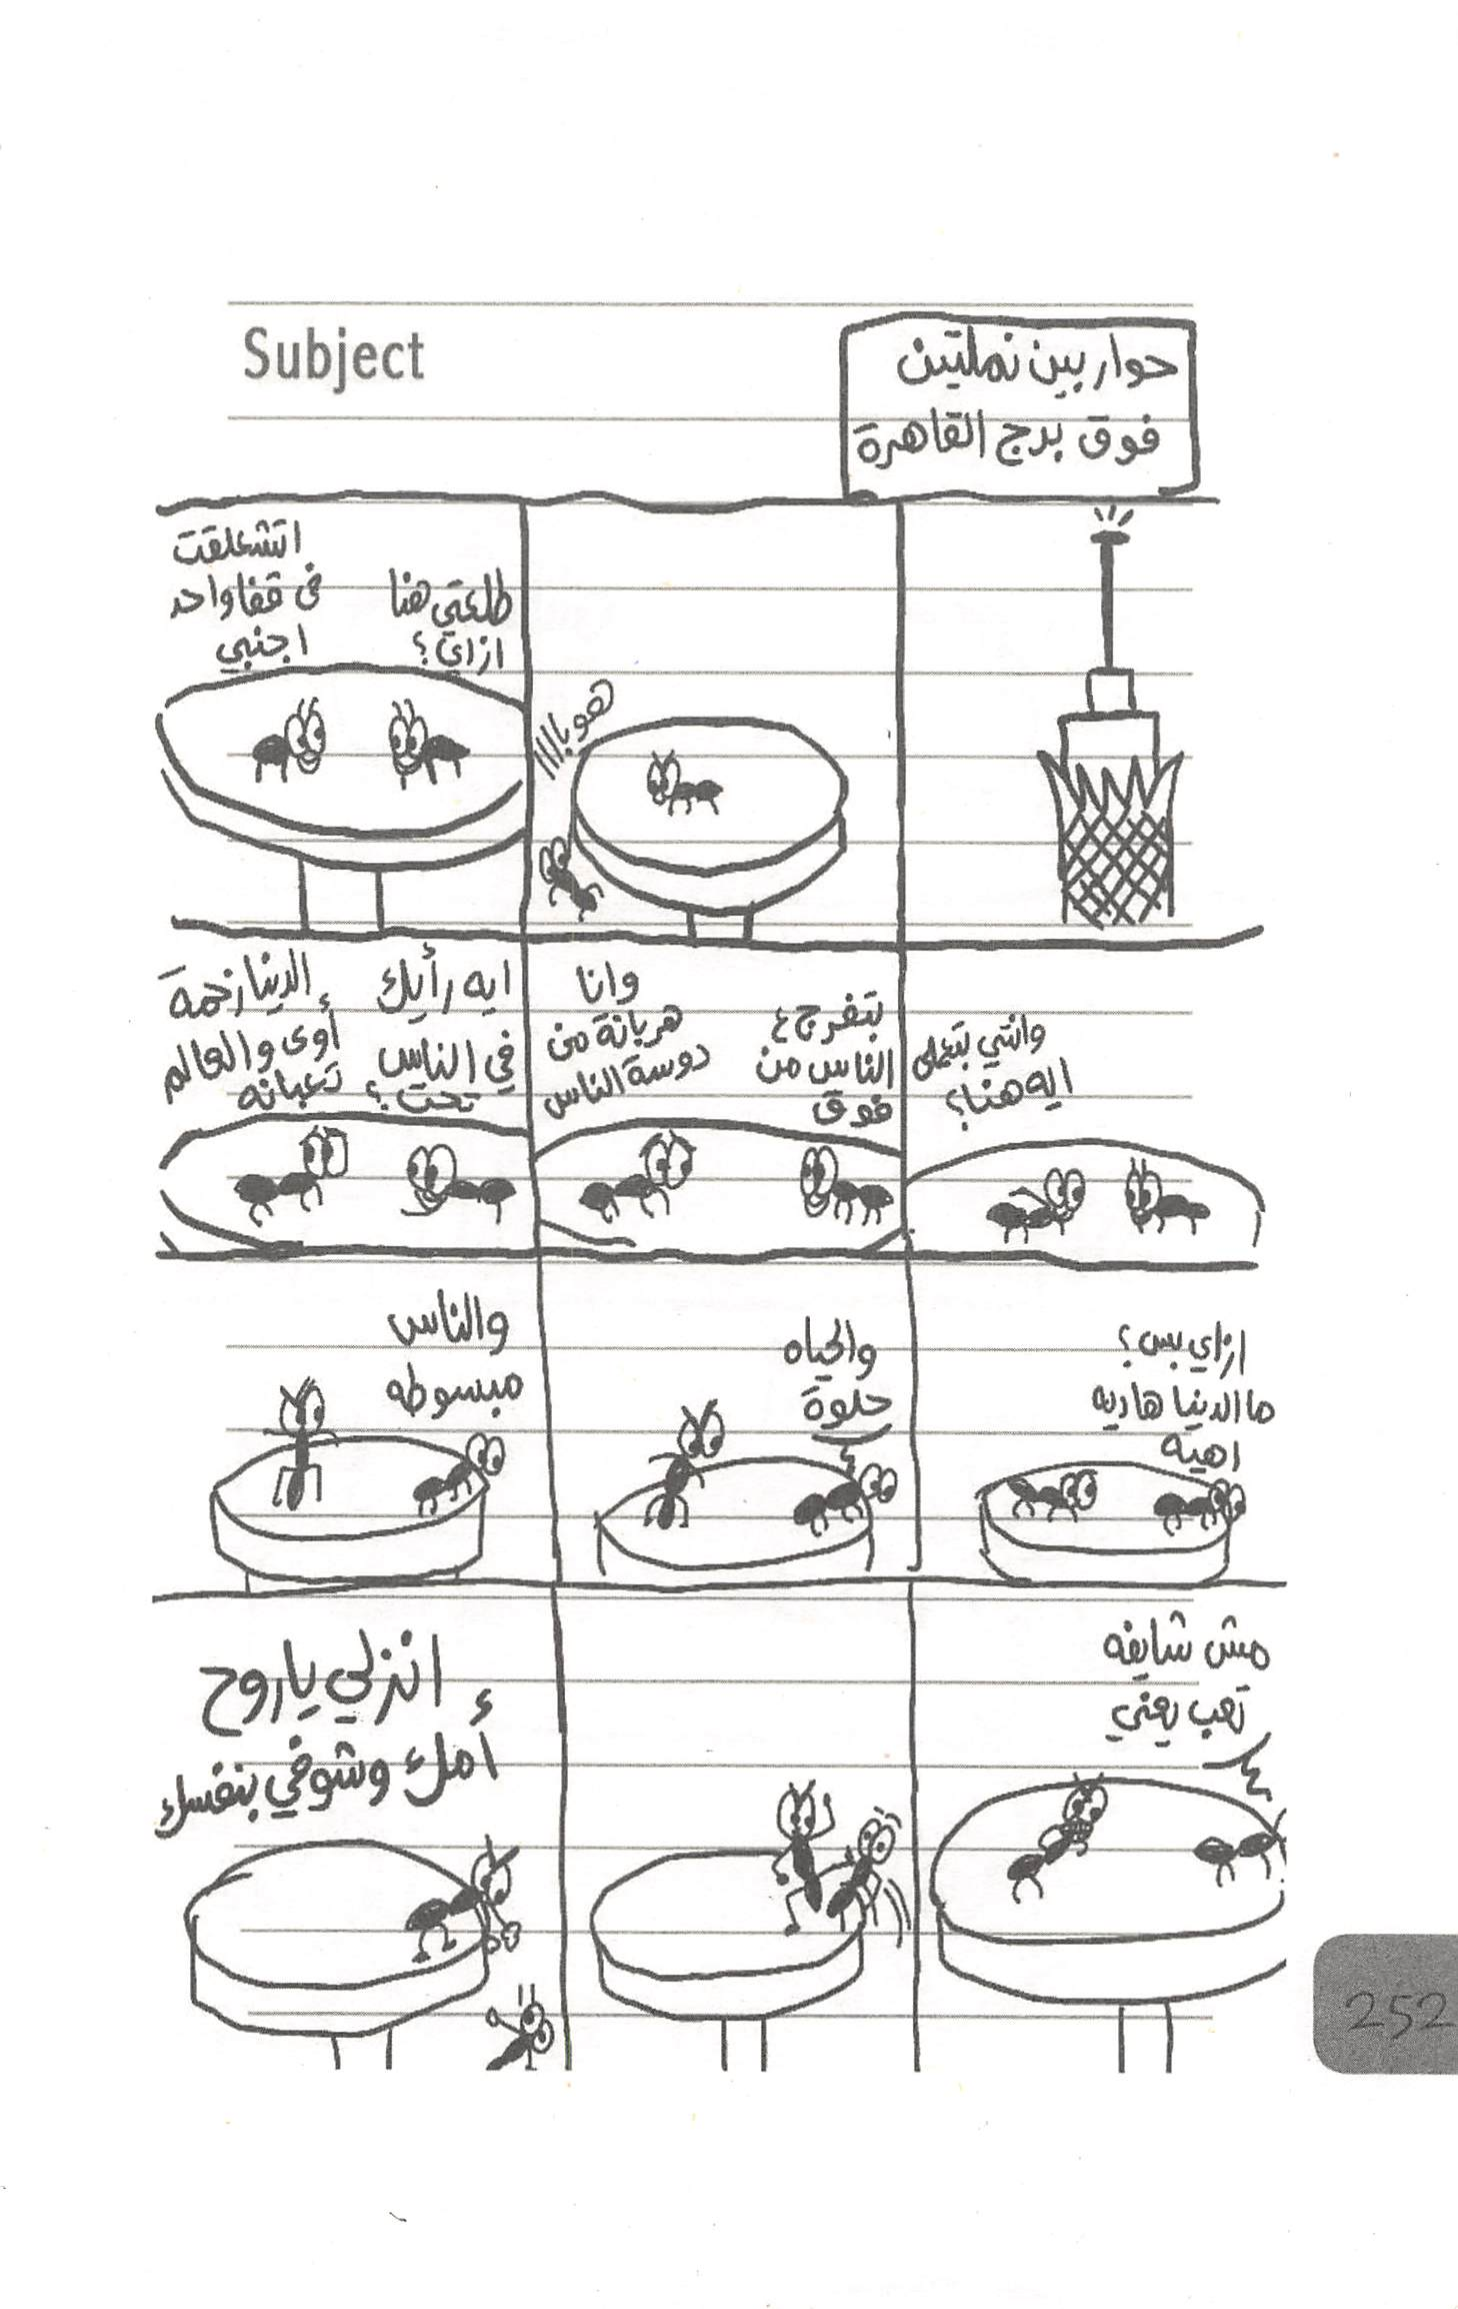 Subject
حوار بين نملتين
فوق برج القاهرة
هوباااا
طلعتي هنا
ازاي؟
اتشعلقت
في قفا واحد
اجنبي
وانتي بتعملي
ايه هنا؟
بتفرج ع
الناس من
فوق
وانا
هربانة من
دوسة الناس
ايه رأيك
في الناس
تحت؟
الدنيا زحمة
أوى والعالم
تعبانه
ازاي بس؟
ما الدنيا هاديه
اهيه
والحياه
حلوة
والناس
مبسوطه
مش شايفه
تعب يعني
انزلي ياروح
أمك وشوفي بنفسك
252